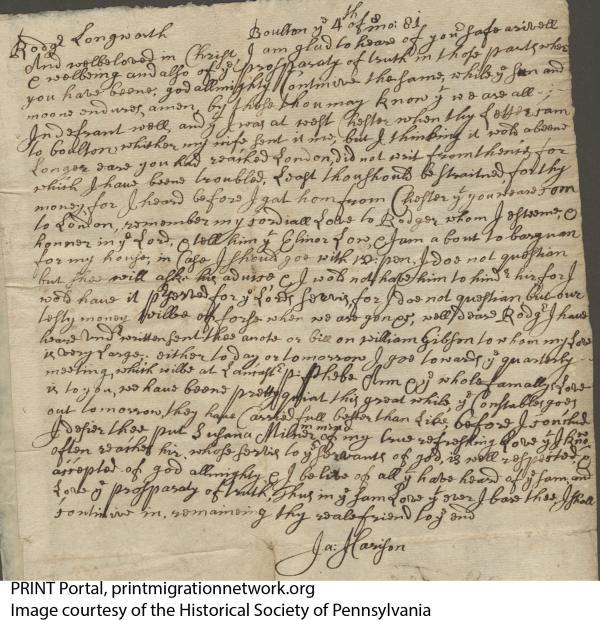 Boulton yᵉ 4th of 8 mo: 81
Rodgʳ Longworth
And welbeloved in Christ I am glad to hear of your safe arivell
& welbeing and also of yᵉ prosparaty of truth in those parts where
you have beene, god allmighty Continue the same, while yᵉ sun and
moone endures, amen, by these thou may know yᵗ we are all
Indefrant well, and yᵗ I was at west Chester when thy Letter cam
to boulton, whither my wife sent it me, but I thinking it wold abeene
Longer eare you had reached London, did not writ from thence, for
which I have beene troubled, Least thou should be straitned for thy
money, for I heard before I gat hom from Chester yᵗ you weare com
to London, remember my cordiall Love to Rodger whom I esteeme, &
honner in yᵉ Lord, & tell him yᵗ Elinor Low, & I am about to barguan
for my house, in Case I should goe with W: pen, I doe not question
but shee will aske his advise & I wold not have him to hindʳ hir for I
wold have it pʳserved for yᵉ Lords servis, for I doe not question but our
testymoney willbe of forse when we are gon &c, well deare Rodgʳ I have
heare undʳ written sent thee a note or bill on william Gibson to whom my Love
is very Large, either to day or tomorrow I goe towards yᵉ quarterly
meeting, which wilbe at Lancastʳ, phebe Ann & yᵉ whole famallys Love
is to you, we have beene pretty quiat this great while yᵉ Constables goes
out tomorrow, they have Carried full better than Like, before I conclud
I desier thee put Susana Milner in mind of my true refreshing Love yᵗ I
often reaches hir, whose servis to yᵉ servants of god, is well respected &
accepted of god allmighty & I beleve of all yᵗ have heard of yᵉ sam, and
Love yᵉ prosparaty of truth, thus in yᵉ sam Love yᵗ ever I bare thee I shall
continue in, remaineing thy reale friend to yᵉ end
Ja: Harison
PRINT Portal, printmigrationnetwork.org
Image courtesy of the Historical Society of Pennsylvania